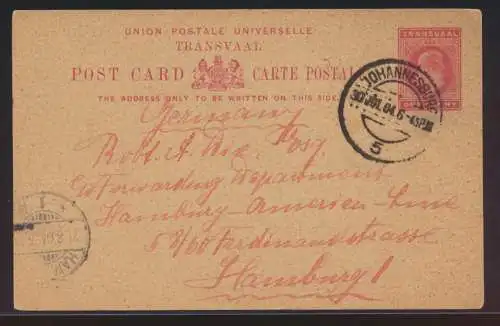 UNION POSTALE UNIVERSELLE
TRANSVAAL
POST CARD CARTE POSTALE
THE ADDRESS ONLY TO BE WRITTEN ON THIS SIDE.
TRANSVAAL
JOHANNESBURG
30 JUL 04. 6-45PM
5
Germany
Robt. A. Esq.
c/o Forwarding Department
Hamburg-American-Line
58/60 Ferdinandstrasse
Hamburg 1